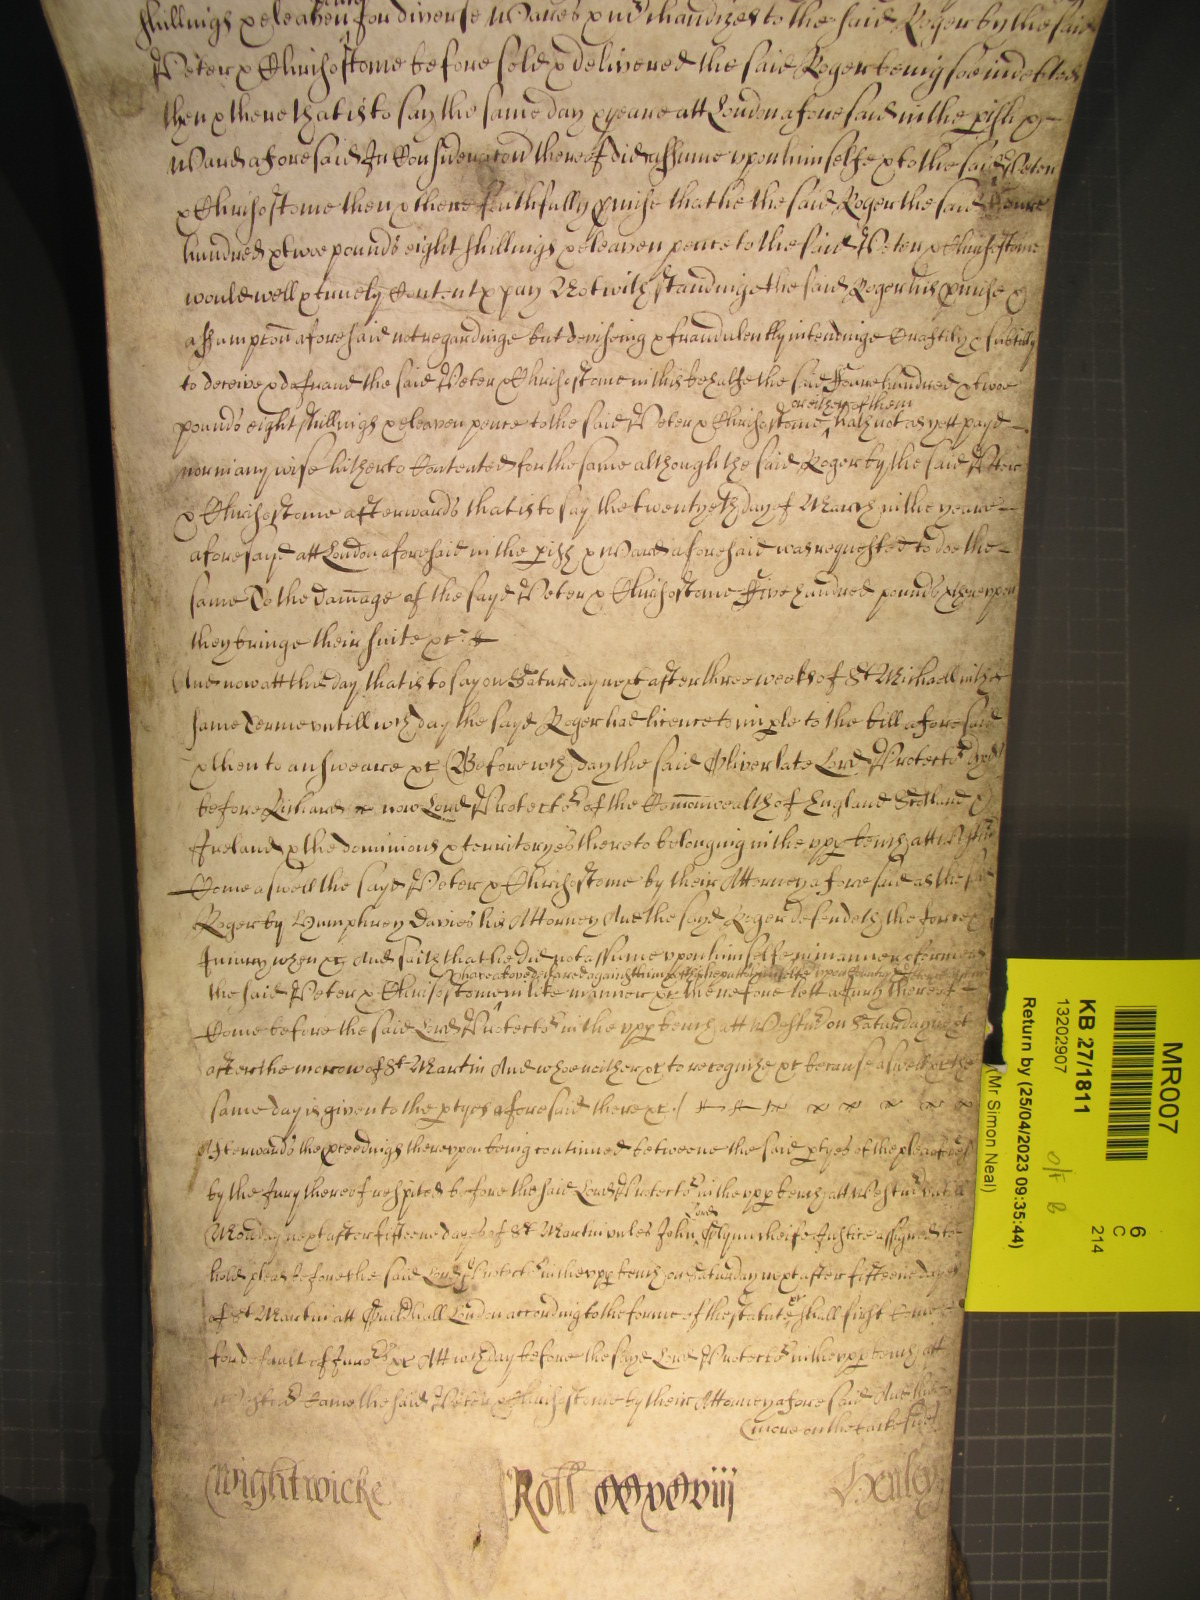 shillings & eleaven pence for diverse Wares & m'chandizes to the said Roger by the said
Peter & Chrisostome before sold & delivered the said Roger being soe indebted
then & there that is to say the same day & yeare att London aforesaid in the pish &
Ward aforesaid In Consideracon thereof did assume upon himselfe & to the said Peter
& Chrisostome then & there faithfully pmise that he the said Roger the said Foure
hundred & twoe pounds eight shillings & eleaven pence to the said Peter & Chrisostome
would well & truely Content & pay Notwithstandinge the said Roger his pmise &
assumpcon aforesaid not regardinge but deviseing & fraudulently intendinge Craftily & subtilly
to deceive & defraud the said Peter & Chrisostome in this behalfe the said Foure hundred & twoe
or either of them
pounds eight shillings & eleaven pence to the said Peter & Chrisostome hath not as yett payd
nor in any wise hitherto Contented for the same although the said Roger by the said Peter
& Chrisostome afterwards that is to say the twentyeth day of March in the yeare
aforesayd att London aforesaid in the pish & Ward aforesaid was requested to doe the
same To the damage of the sayd Peter & Chrisostome Five hundred pounds & thereupon
they bringe their suite &c
And now att this day that is to say on Saturday next after three weekes of St Michaell in the
same Terme untill wch day the sayd Roger had licence to imple to the bill aforesaid
& then to answeare &c Before wch day the said Oliver late Lord Protector dyed
before Richard now Lord Protector of the Comonwealth of England Scotland &
Ireland & the dominions & territoryes thereto belonging in the upp bench att Westm
Come aswell the sayd Peter & Chrisostome by their Attorney aforesaid as the said
Roger by Humphrey Davies his Attorney And the sayd Roger defendeth the force &
Iniury when &c And saith that he did not assume upon himselfe in manner & forme as
have above declared against him & of this he putts himselfe upon the Country
the said Peter & Chrisostome in like manner &c therefore lett a Jury thereof
Come before the said Lord Protector in the upp bench att Westmr on Saturday next
after the morrow of St Martin And whoe neither &c to recognize &c because aswell &c the
same day is given to the ptyes aforesaid there &c
Afterwards the pceedings thereupon being continued betweene the said ptyes of the plea aforesaid
by the Jury thereof respited before the said Lord Protector in the upp bench att Westmr untill
Monday next after fifteene dayes of St Martin unles John Lord Glynn cheife Justice assigned to
hold pleas before the said Lord Protector in the upp bench on Saturday next after fifteene dayes
of St Martin att Guildhall London according to the forme of the statute &c shall first Come
for default of Jurors &c Att wch day before the sayd Lord Protector in the upp bench att
Westmr Came the said Peter & Chrisostome by their Attorney aforesaid And the
(more on the backe side)
Wightwicke Roll CCxCviii Henley
MR007
KB 27/1811
13202907
Return by (25/04/2023 09:35:44)
(Mr Simon Neal)
6
C
214